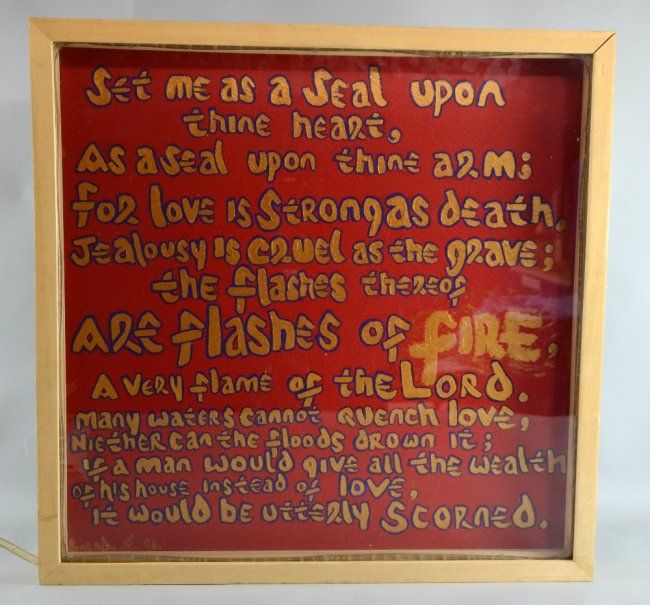 Set me as a seal upon
thine heart,
As a seal upon thine arm;
For love is strong as death.
Jealousy is cruel as the grave;
the flashes thereof
ARE flashes of FIRE,
A very flame of the LORD.
Many waters cannot quench love,
Niether can the floods drown it;
If a man would give all the wealth
of his house instead of love,
it would be utterly scorned.